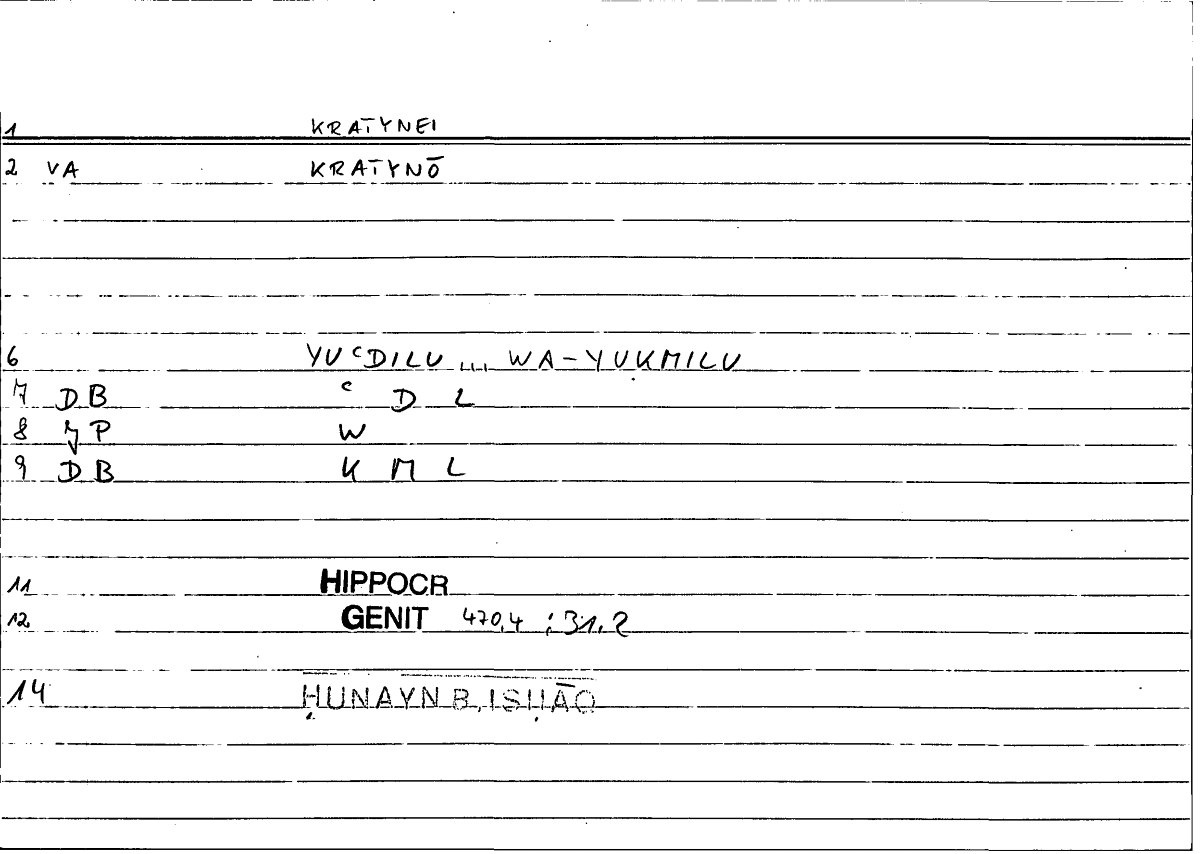 1 KRATYNEI
2 VA KRATYNŌ
6 YUᶜDILU ... WA-YUKMILU
7 DB ᶜ D L
8 JP W
9 DB K M L
11 HIPPOCR
12 GENIT 470,4 ; 31.2
14 ḤUNAYN B. ISḤĀQ